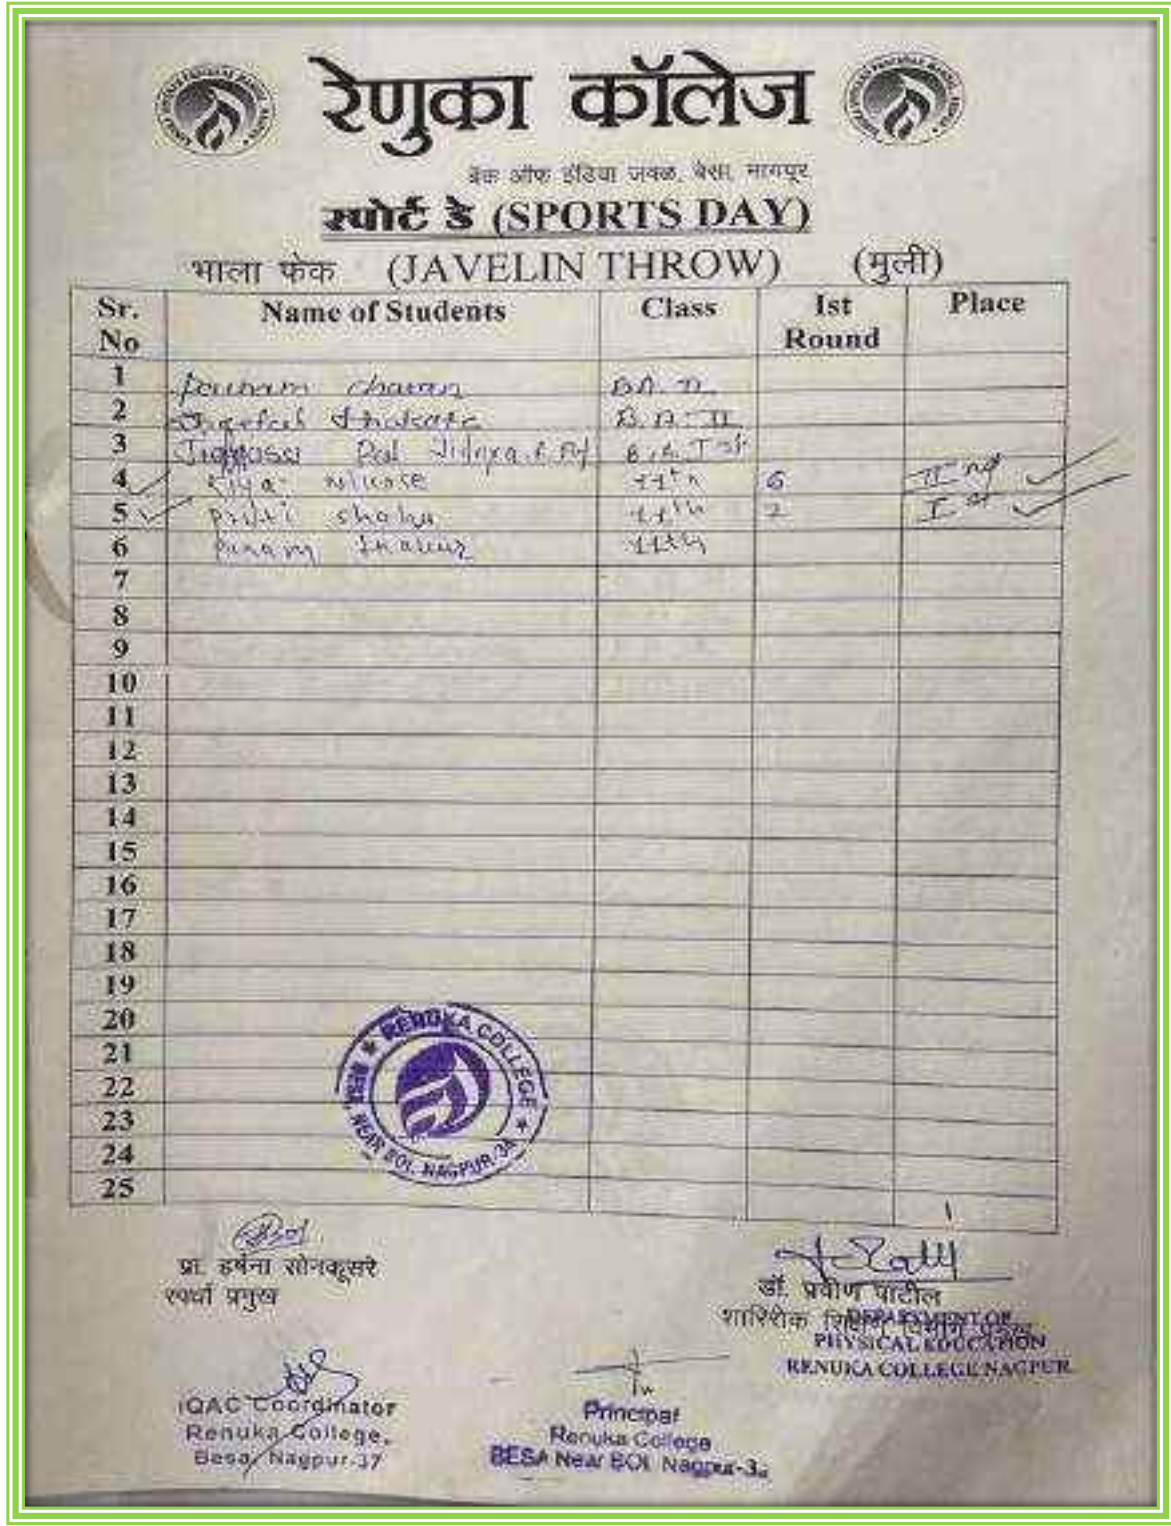 रेणुका कॉलेज
बँक ऑफ इंडिया जवळ, बेसा, नागपूर
स्पोर्ट डे (SPORTS DAY)
भाला फेक (JAVELIN THROW) (मुली)
Sr. No Name of Students Class Ist Round Place
1 chavan
2 B.A. II
3 Pal
4 Riya 11th 6 II nd
5 Priti shahu 11th 7 I st
6 Punam Thakur 11th
7
8
9
10
11
12
13
14
15
16
17
18
19
20
21
22
23
24
25
RENUKA COLLEGE
BESA, NEAR BOI, NAGPUR
प्रा. हर्षना सोनकूसरे
स्पर्धा प्रमुख
डॉ. प्रवीण पाटील
शारिरीक शिक्षण विभाग प्रमुख
DEPARTMENT OF
PHYSICAL EDUCATION
RENUKA COLLEGE NAGPUR
IQAC Coordinator
Renuka College,
Besa, Nagpur-37
Principal
Renuka College
BESA Near BOI, Nagpur-3